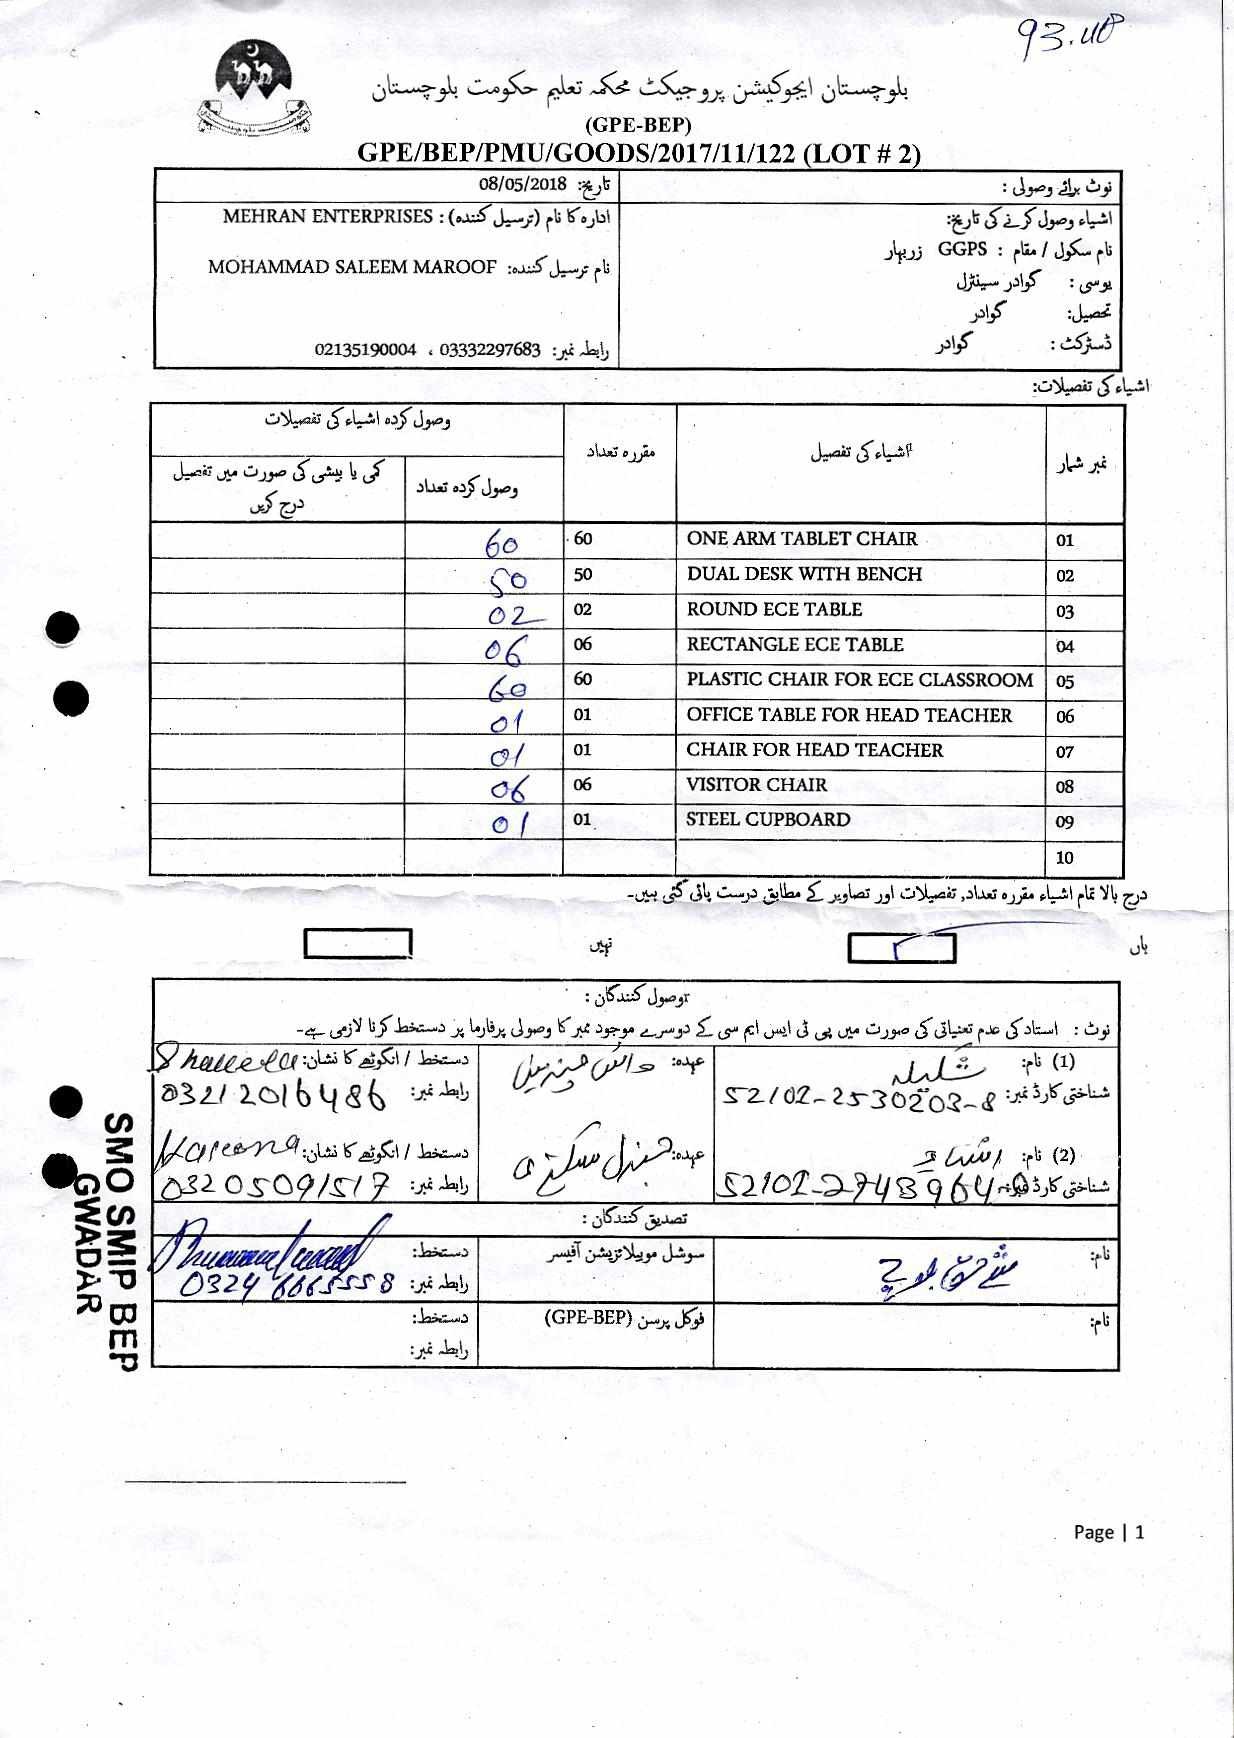 بلوچستان ایجوکیشن پروجیکٹ محکمہ تعلیم حکومت بلوچستان
(GPE-BEP)
GPE/BEP/PMU/GOODS/2017/11/122 (LOT # 2)
نوٹ برائے وصولی :
تاریخ: 08/05/2018
اشیاء وصول کرنے کی تاریخ:
نام سکول / مقام : GGPS زربہار
یوسی : گوادر سینٹرل
تحصیل: گوادر
ڈسٹرکٹ : گوادر
ادارہ کا نام (ترسیل کنندہ) : MEHRAN ENTERPRISES
نام ترسیل کنندہ: MOHAMMAD SALEEM MAROOF
رابطہ نمبر: 03332297683 ، 02135190004
اشیاء کی تفصیلات:
نمبر شمار اشیاء کی تفصیل مقررہ تعداد وصول کردہ اشیاء کی تفصیلات
وصول کردہ تعداد کمی یا بیشی کی صورت میں تفصیل درج کریں
01 ONE ARM TABLET CHAIR 60 60
02 DUAL DESK WITH BENCH 50 50
03 ROUND ECE TABLE 02 02
04 RECTANGLE ECE TABLE 06 06
05 PLASTIC CHAIR FOR ECE CLASSROOM 60 60
06 OFFICE TABLE FOR HEAD TEACHER 01 01
07 CHAIR FOR HEAD TEACHER 01 01
08 VISITOR CHAIR 06 06
09 STEEL CUPBOARD 01 01
10
درج بالا تمام اشیاء مقررہ تعداد, تفصیلات اور تصاویر کے مطابق درست پائی گئی ہیں۔
ہاں نہیں
وصول کنندگان :
نوٹ : استاد کی عدم تعیناتی کی صورت میں پی ٹی ایس ایم سی کے دوسرے موجود ممبر کا وصولی پرفارما پر دستخط کرنا لازمی ہے۔
(1) نام: شکیلہ عہدہ: دستخط / انگوٹھے کا نشان: Shakeela
شناختی کارڈ نمبر: 52102-2530203-8 رابطہ نمبر: 03212016486
(2) نام: عہدہ: جنرل سیکرٹری دستخط / انگوٹھے کا نشان:
شناختی کارڈ نمبر: رابطہ نمبر: 03205091517
تصدیق کنندگان :
نام: سوشل موبیلائزیشن آفیسر دستخط:
رابطہ نمبر:
نام: فوکل پرسن (GPE-BEP) دستخط:
رابطہ نمبر:
SMO SMIP BEP
GWADAR
Page | 1